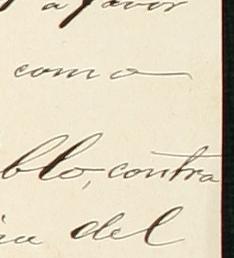 a favor
como
blo, contra
ia del